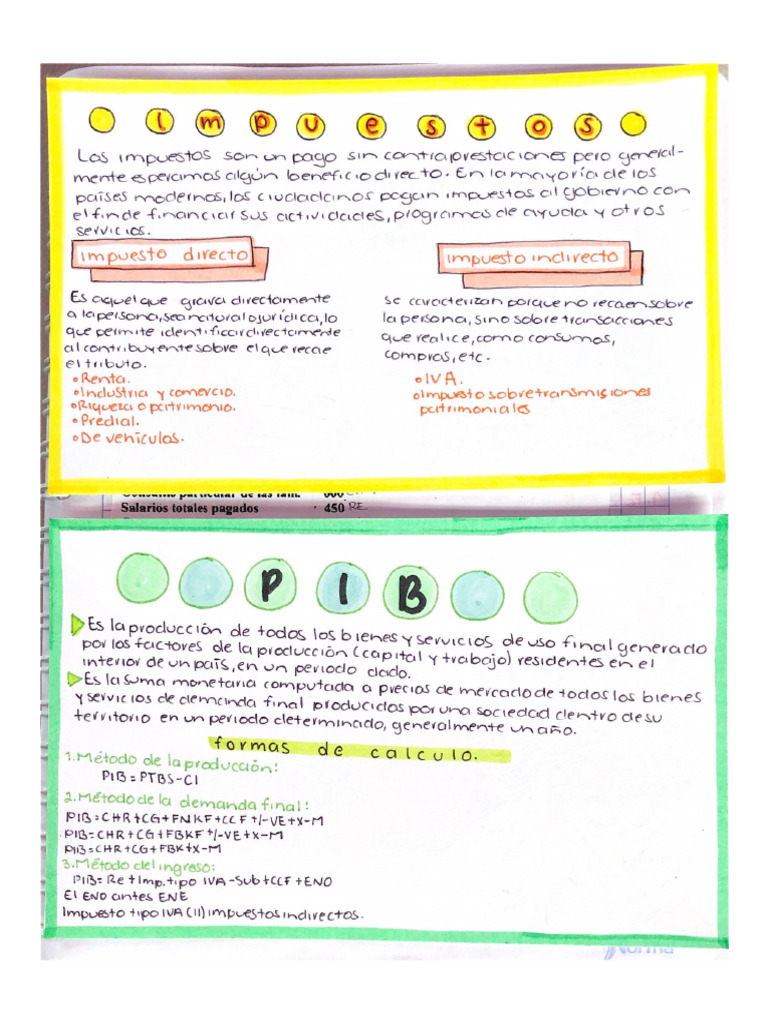 Impuestos
Los impuestos son un pago sin contraprestaciones pero general-
mente esperamos algún beneficio directo. En la mayoría de los
países modernos, los ciudadanos pagan impuestos al gobierno con
el fin de financiar sus actividades, programas de ayuda y otros
servicios.
impuesto directo
Es aquel que grava directamente
a la persona, sea natural o jurídica, lo
que permite identificar directamente
al contribuyente sobre el que recae
el tributo.
• Renta.
• Industria y comercio.
• Riqueza o patrimonio.
• Predial.
• De vehículos.
impuesto indirecto
Se caracterizan porque no recaen sobre
la persona, sino sobre transacciones
que realice, como consumos,
compras, etc.
• IVA.
• Impuesto sobre transmisiones
patrimoniales
Consumo particular de las fam. 600
Salarios totales pagados 450 RE
PIB
Es la producción de todos los bienes y servicios de uso final generado
por los factores de la producción (capital y trabajo) residentes en el
interior de un país, en un periodo dado.
Es la suma monetaria computada a precios de mercado de todos los bienes
y servicios de demanda final producidos por una sociedad dentro de su
territorio en un periodo determinado, generalmente un año.
formas de calculo.
1. Método de la producción:
PIB = PTBS-CI
2. Método de la demanda final:
PIB=CHR+CG+FNKF+CCF+/-VE+X-M
PIB=CHR+CG+FBKF+/-VE+X-M
PIB=CHR+CG+FBK+X-M
3. Método del ingreso:
PIB= Re+Imp. tipo IVA-Sub+CCF+ENO
El ENO antes ENE
Impuesto tipo IVA (II) impuestos indirectos.
Norma